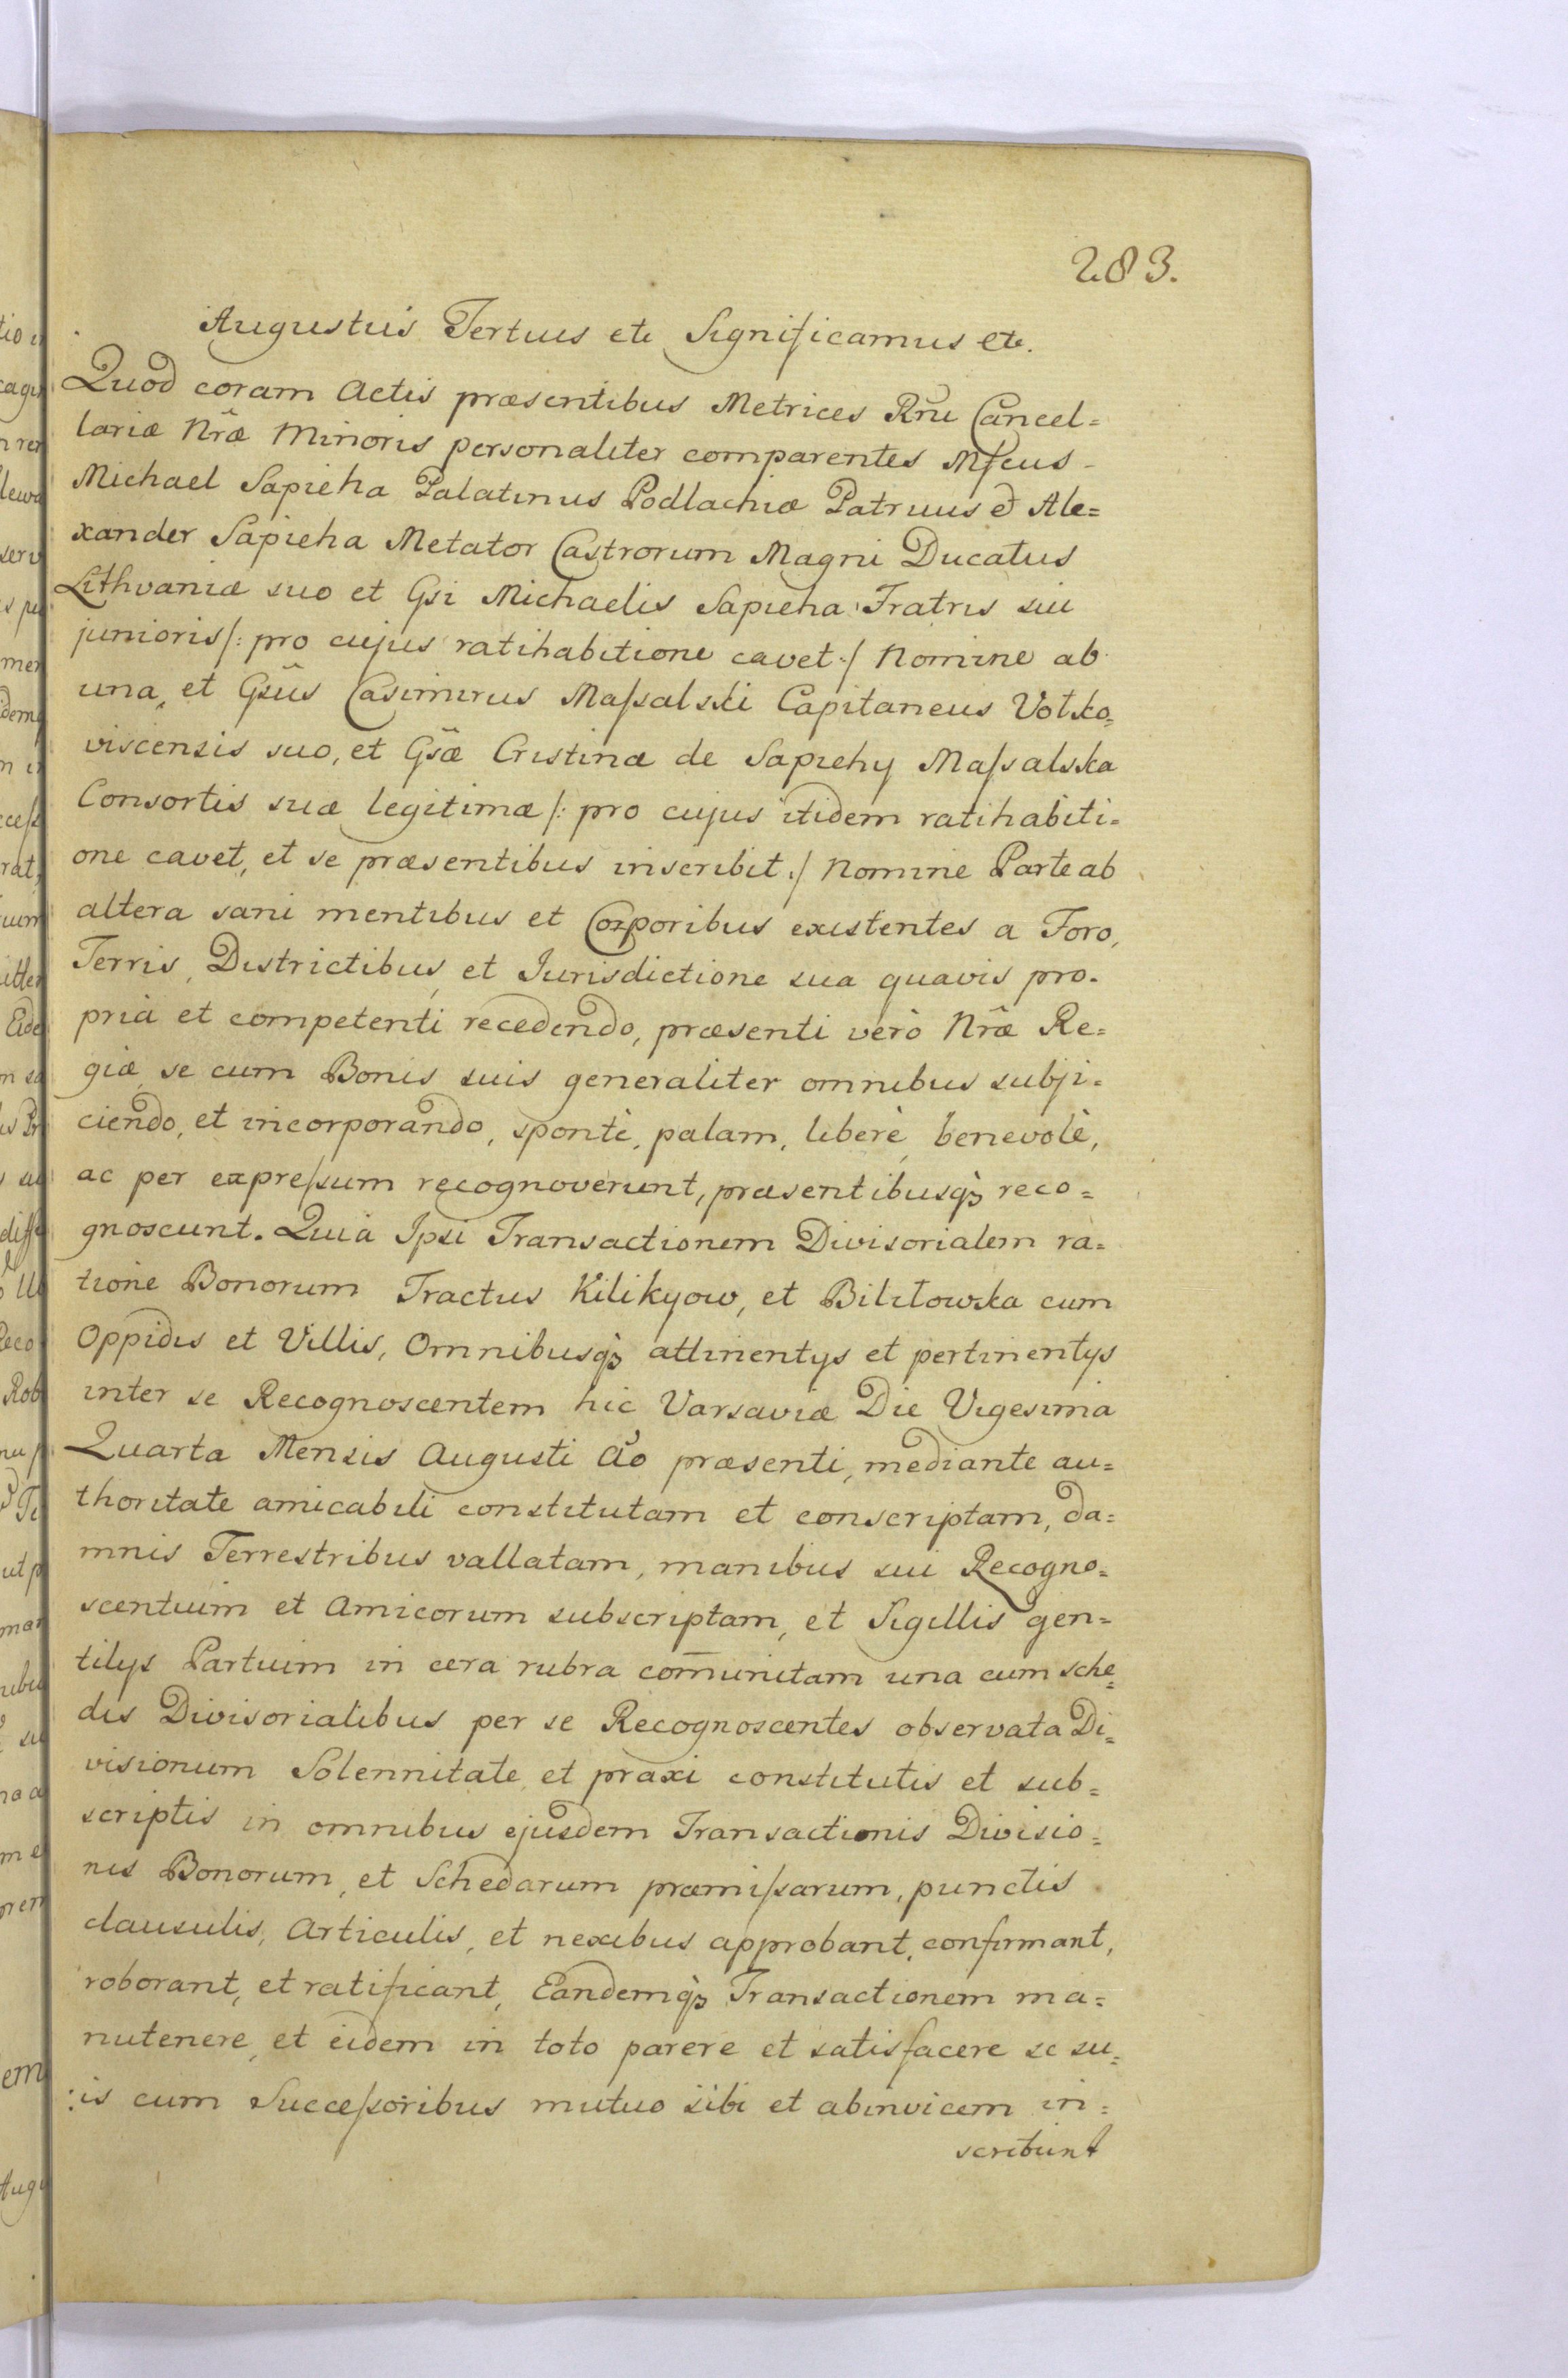 283.
Augustus Tertius etc Significamus etc.
Quod coram Actis præsentibus Metrices Rñi Cancel=
lariæ Nrãe Minoris personaliter comparentes Mfcus
Michael Sapieha Palatinus Podlachiæ Patruus et Ale=
xander Sapieha Metator Castrorum Magni Ducatus
Lithvaniæ suo et Gsi Michaelis Sapieha Fratris sui
junioris /: pro cujus ratihabitione cavet :/ Nomine ab
una, et Gsũs Casimirus Maſsalski Capitaneus Volko=
viscensis suo, et Gsæ̃ Cristinæ de Sapiehy Maſsalska
Consortis suæ legitimæ /: pro cujus itidem ratihabiti=
one cavet, et se præsentibus inscribit :/ Nomine Parte ab
altera sani mentibus et Corporibus existentes a Foro,
Terris, Districtibus, et Jurisdictione sua quavis pro=
pria et competenti recedendo, præsenti verò Nræ̃ Re=
giæ, se cum Bonis suis generaliter omnibus subji=
ciendo, et incorporando, spontè, palam, liberè, benevolè,
ac per expreſsum recognoverunt, præsentibusq̀ȝ reco=
gnoscunt. Quia Ipsi Transactionem Divisorialem ra=
tione Bonorum Tractus Kilikyow, et Bililowska cum
Oppidis et Villis, Omnibusq̀ȝ attinentys et pertinentys
inter se Recognoscentem hic Varsaviæ Die Vigesima
Quarta Mensis Augusti Aõ præsenti, mediante au=
thoritate amicabili constitutam et conscriptam, da=
mnis Terrestribus vallatam, manibus sui Recogno=
scentium et Amicorum subscriptam, et Sigillis gen=
tilys Partium in cera rubra com̄unitam una cum sche=
dis Divisorialibus per se Recognoscentes observata Di=
visionum Solennitate et praxi constitutis et sub=
scriptis in omnibus ejusdem Transactionis Divisio=
nis Bonorum, et Schedarum præmiſsarum, punctis
clausulis, Articulis, et nexibus approbant, confirmant,
roborant, et ratificant, Eandemq̀ȝ Transactionem ma=
nutenere, et eidem in toto parere et satisfacere se su=
:is cum Succeſsoribus mutuo sibi et abinvicem in=
scribunt